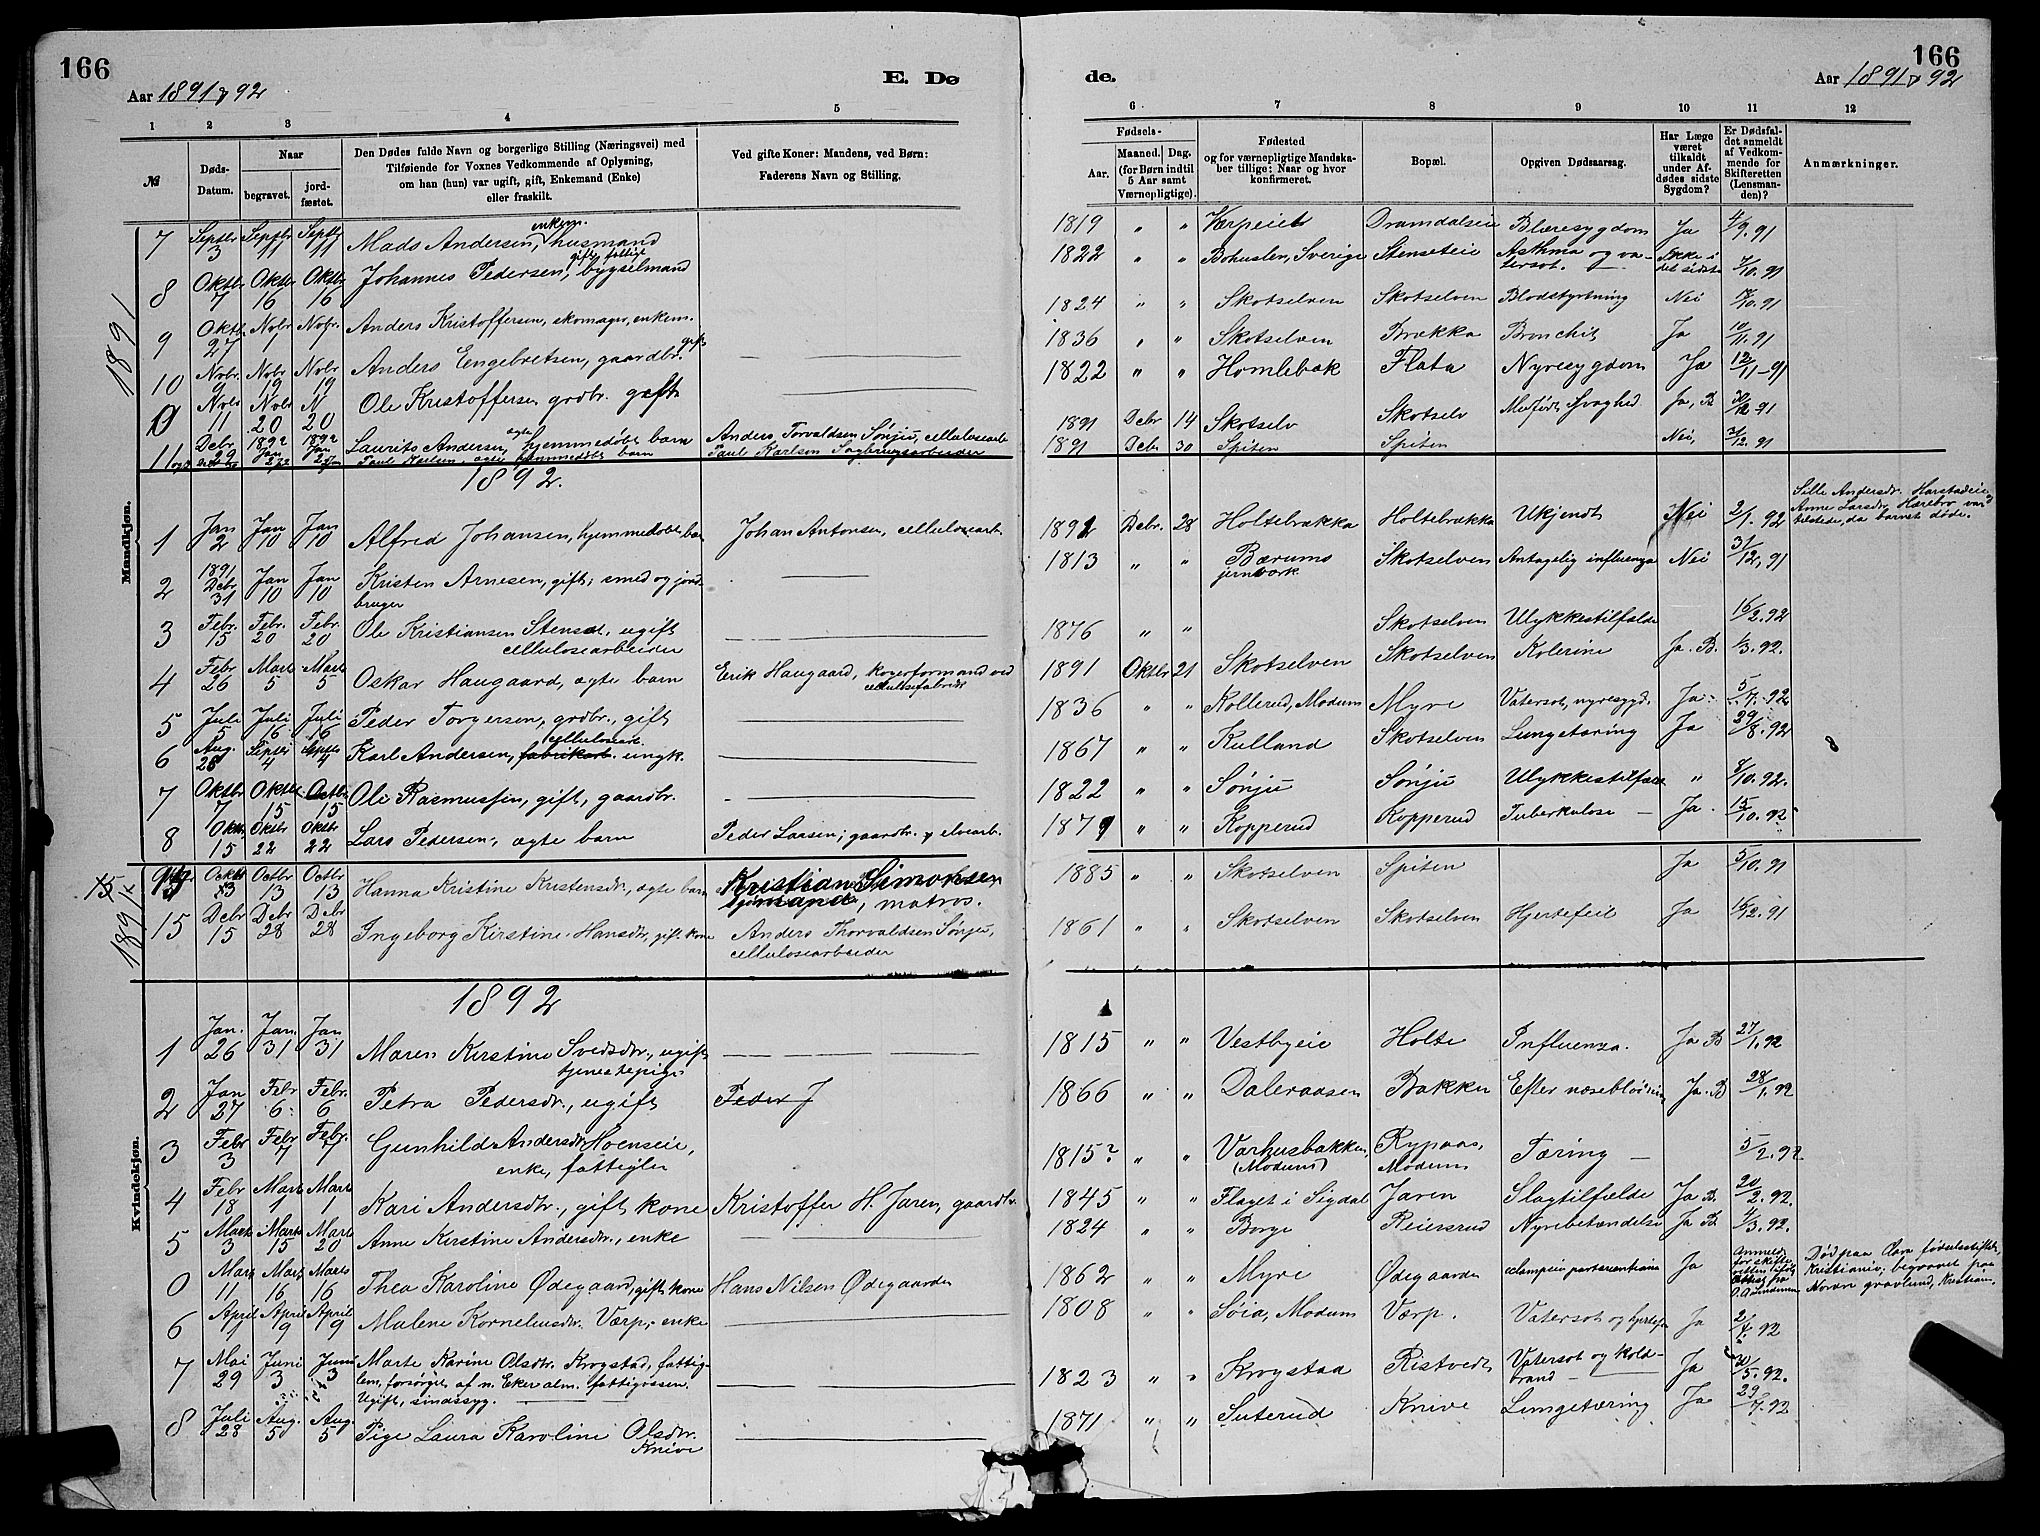 166
Aar 1891 & 92
E. Dø
1 2 3 4 5
№
Døds-Datum.
Naar
begravet.
jord-fæstet.
Den Dødes fulde Navn og borgerlige Stilling (Næringsvei) med
Tilføiende for Voxnes Vedkommende af Oplysning,
om han (hun) var ugift, gift, Enkemand (Enke)
eller fraskilt.
Ved gifte Koner: Mandens, ved Børn:
Faderens Navn og Stilling.
1891
Mandkjøn.
7 Septbr 3 Septbr 11 Septbr 11 Mads Andersen, enkem. husmand
8 Oktbr 7 Oktbr 16 Oktbr 16 Johannes Pedersen, gift, fattigl bygselmand
9 Oktbr 27 Nobr 1 Nobr. 1 Anders Kristoffersen, skomager, enkem.
10 Nobr. 9 Nobr 19 Nobr 19 Anders Engebretsen, gaardbr. gift
0 Nobr 11 Nobr 20 N 20 Ole Kristoffersen grdbr. gift
11 Debr 29 1892 Jan 1892 Jan Laurits Andersen, ægte hjemmedøbt barn Anders Torvaldsen Sønju, cellulosearb
Paul Karlsen, ægte hjemmedøbt barn Paul Karlsen Sagbrugsarbeider
1892.
1 Jan 2 Jan 10 Jan 10 Alfred Johansen, hjemmedøbt, barn Johan Antonsen, cellulosearb.
2 1891 Debr 31 Jan 10 Jan 10 Kristen Arnesen, gift, smed og jord-
bruger
3 Febr. 15 Febr. 20 Febr. 20 Ole Kristiansen Stenset, ugift
cellulosearbeider
4 Febr 26 Marts 5 Marts 5 Oskar Haugaard, ægte barn Erik Haugaard, kogerformand ved
cellulosefabrik
5 Juli 5 Juli 16 Juli 16 Peder Torgersen, grdbr., gift
6 Aug. 28 Septbr 4 Septbr 4 Karl Andersen, fabrikarb. cellulosearb. ungk.
7 Oktbr 7 Oktbr 15 Octbr 15 Ole Rasmussen, gift, gaardbr.
8 Oktbr. 15 Oktbr 22 Oktbr 22 Lars Pedersen, ægte barn Peder Larsen, gaardbr. & elvearb.
1891
Kvindekjøn.
Octbr 3 Octbr 13 Octbr 13 Hanna Kristine Kristensdr., ægte barn Kristian Simonsen
matros.
15 Debr 15 Debr 28 Debr 28 Ingeborg Kirstine Hansdtr, gift kone Anders Thorvaldsen Sønju,
cellulosearbeider
1892
1 Jan. 26 Jan. 31 Jan 31 Maren Kirstine Svedsdtr., ugift
tjenestepige
2 Jan 27 Febr 6 Febr 6 Petra Pedersdtr., ugift Peder J
3 Febr 3 Febr 7 Febr. 7 Gunhild Andersdtr Hoenseie,
enke, fattiglem
4 Febr 18 Marts 1 Marts 1 Kari Andersdtr., gift kone Kristoffer H. Jaren, gaardbr.
5 Marts 3 Marts 15 Marts 20 Anne Kirstine Andersdtr., enke
0 Marts 11 Marts 16 Marts 16 Thea Karoline Ødegaard, gift kone Hans Nilsen Ødegaarden
6 April 1 April 9 April 9 Malene Korneliusdtr. Værp, enke
7 Mai 29 Juni 3 Juni 3 Marte Karine Olsdtr. Krogstad, fattig-
lem, forsørget af n. Eker alm. fattigvæsen.
Ugift, sindssyg.
8 Juli 28 Aug. 5 Aug. 5 Pige Laura Karoline Olsdtr.
Knive
166
de.
Aar 1891 & 92
6 7 8 9 10 11 12
Fødsels-
Aar.
Maaned. Dag.
(for Børn indtil
5 Aar samt
Værnepligtige).
Fødested
og for værnepligtige Mandska-
ber tillige: Naar og hvor
konfirmeret.
Bopæl.
Opgiven Dødsaarsag.
Har Læge
været
tilkaldt
under Af-
dødes sidste
Sygdom?
Er Dødsfal-
det anmeldt
af Vedkom-
mende for
Skifteretten
(Lensman-
den)?
Anmærkninger.
1819 " " Værpeiet Dramdalseie Blæresygdom Ja 4/9. 91
1822 " " Bohuslen, Sverige Stenseteie Asthma og va-
tersot. Ikke i
det sidste 7/10. 91
1824 " " Skotselven Skotselven Blodstyrtning Nei /10. 91
1836 " " Skotselven Brækka Bronchit Ja 10/11. 91
1822 " " Homlebæk Flata Nyresygdom Ja 12/11 - 91
1891 Debr 14 Skotselv Skotselv Medfødt Svaghed Ja, B 30/12 91
1891 Debr 30 Spiten Spiten Nei, /12. 91
1891 Debr. 28 Holtebrækka Holtebrækka Ukjendt Nei 2/1. 92 Sille Andersdtr. Harstadeie
Anne Larsdtr. Hærebro var
tilstede, da barnet døde.
1813 " " Bærums
jernværk Skotselven Antagelig influenza Nei 31/12, 91
1876 " " Skotselven Ulykkestilfælde 16/2. 92
1891 Oktbr 21 Skotselven Skotselven Kolerine Ja. B. 1/3. 92.
1836 " " Kollerud, Modum Myre Vatersot, nyresygd. Ja 5/7. 92
1867 " " Kulland Skotselven Lungetæring Ja 29/8. 92 8
1822 " " Sønju Sønju Ulykkestilfælde " 8/10. 92.
1879 " " Kopperud Kopperud Tuberkulose Ja 15/10. 92
1885 " " Skotselven Spiten Ja 5/10. 91
1861 " " Skotselven Skotselven Hjertefeil Ja 16/12. 91
1815 " " Vestbyeie Holte Influenza. Ja B 27/1. 92
1866 " " Daleraasen Bakken Efter næseblødning Ja. B 28/1. 92
1815? " " Varhusbakken,
(Modum) Rypaas,
Modum Tæring 5/2. 92
1845 " " Flaget i Sigdal Jaren Slagtilfælde Ja B. 20/2. 92.
1824 " " Borge Reiersrud Nyrebetændelse Ja B. 4/3. 92.
1862 " " Myre Ødegaarden eclampsia parturientium Ja Anmeldt
for skifte-
retten Død paa Kva fødselsstiftelse,
Kristiania; begravet paa
Nordre gravlund, Kristiania.
1808 " " Søia, Modum Værp. Vatersot og hjertefeil Ja 2/4. 92
1823 " " Krogstad Ristvedt Vatersot og Kold-
brand Ja 30/5. 92.
1871 " " Suterud Knive Lungetæring Ja 29/7. 92